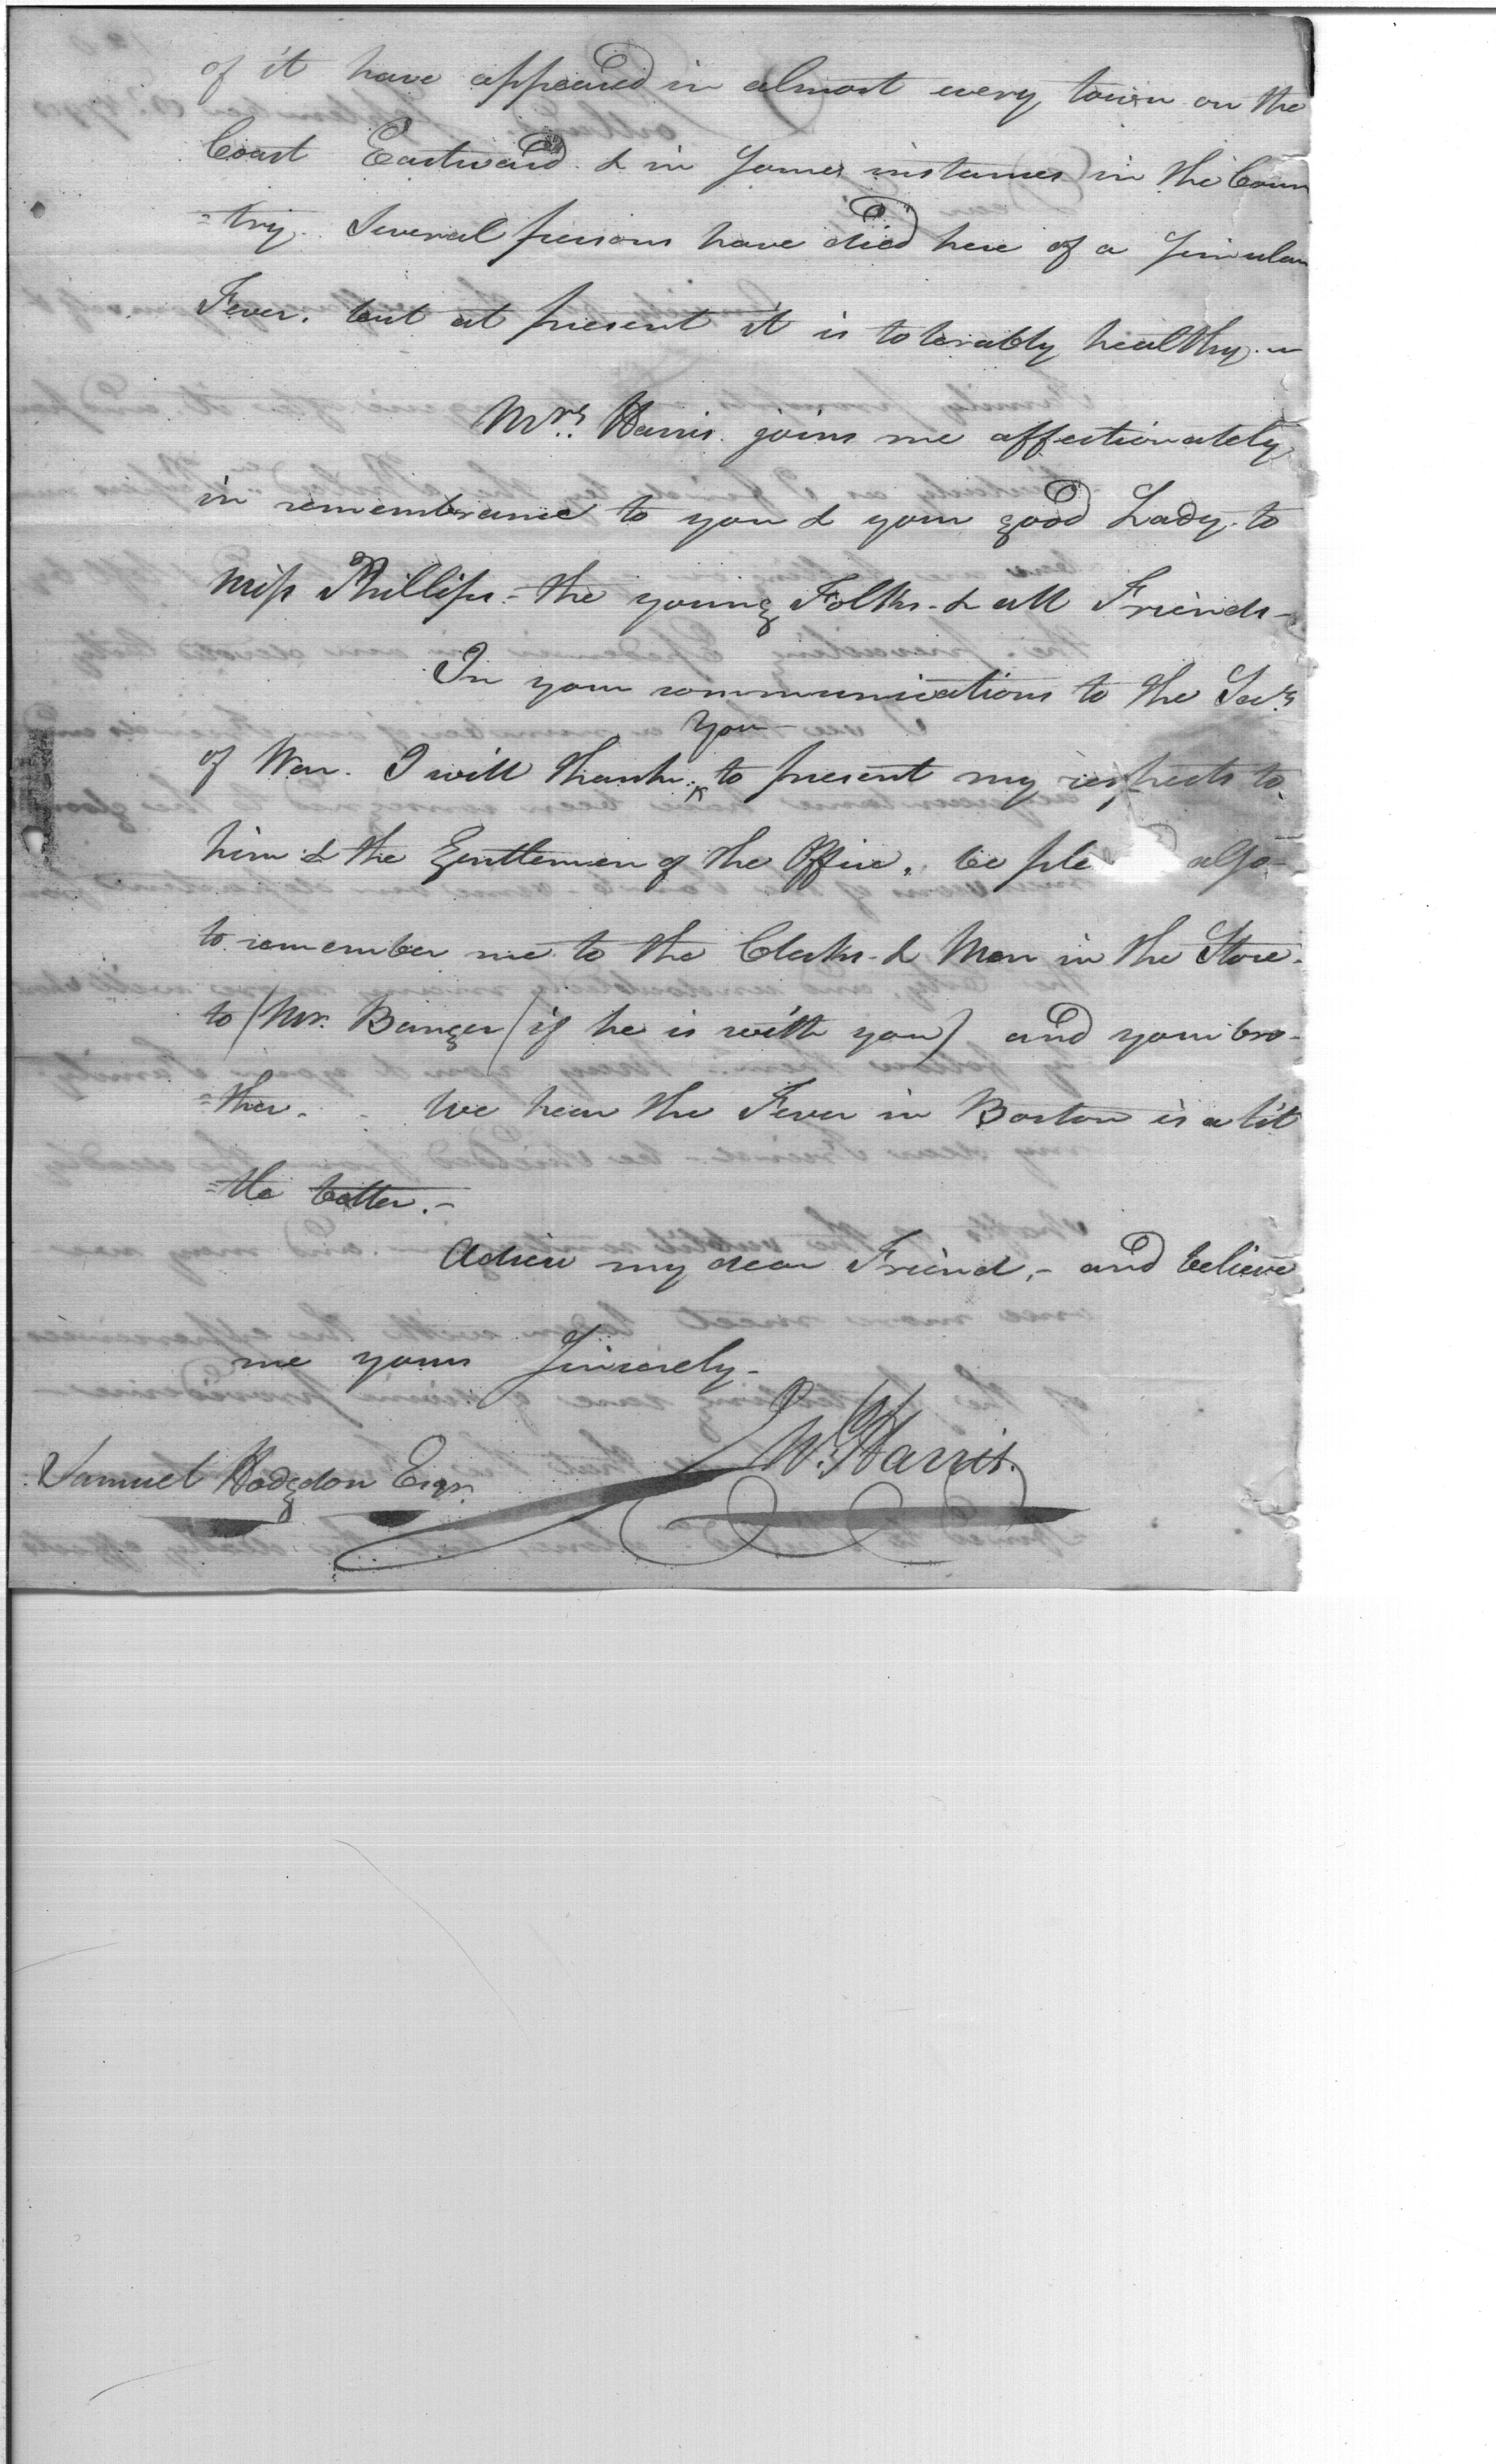 of it have appeared in almost every town on the
Coast Eastward & in some instances in the Coun
=try. Several persons have died here of a similar
Fever. but at present it is tolerably healthy.~
Mrs. Harris joins me affectionately
in remembrance to you & your good Lady. to
Miss Phillips - the young Folks - & all Friends -
In your communications to the Secy.
of War. I will thank you to present my respects to
him & the Gentlemen of the Office. be ple also
to remember me to the Clerks - & Men in the Store.
to Mr. Banger (if he is with you) and your bro-
=ther. - We hear the Fever in Boston is a lit
=tle better. -
Adieu my dear Friend, - and believe
me yours sincerely -
W. Harris.
Samuel Hodgdon Esqr.